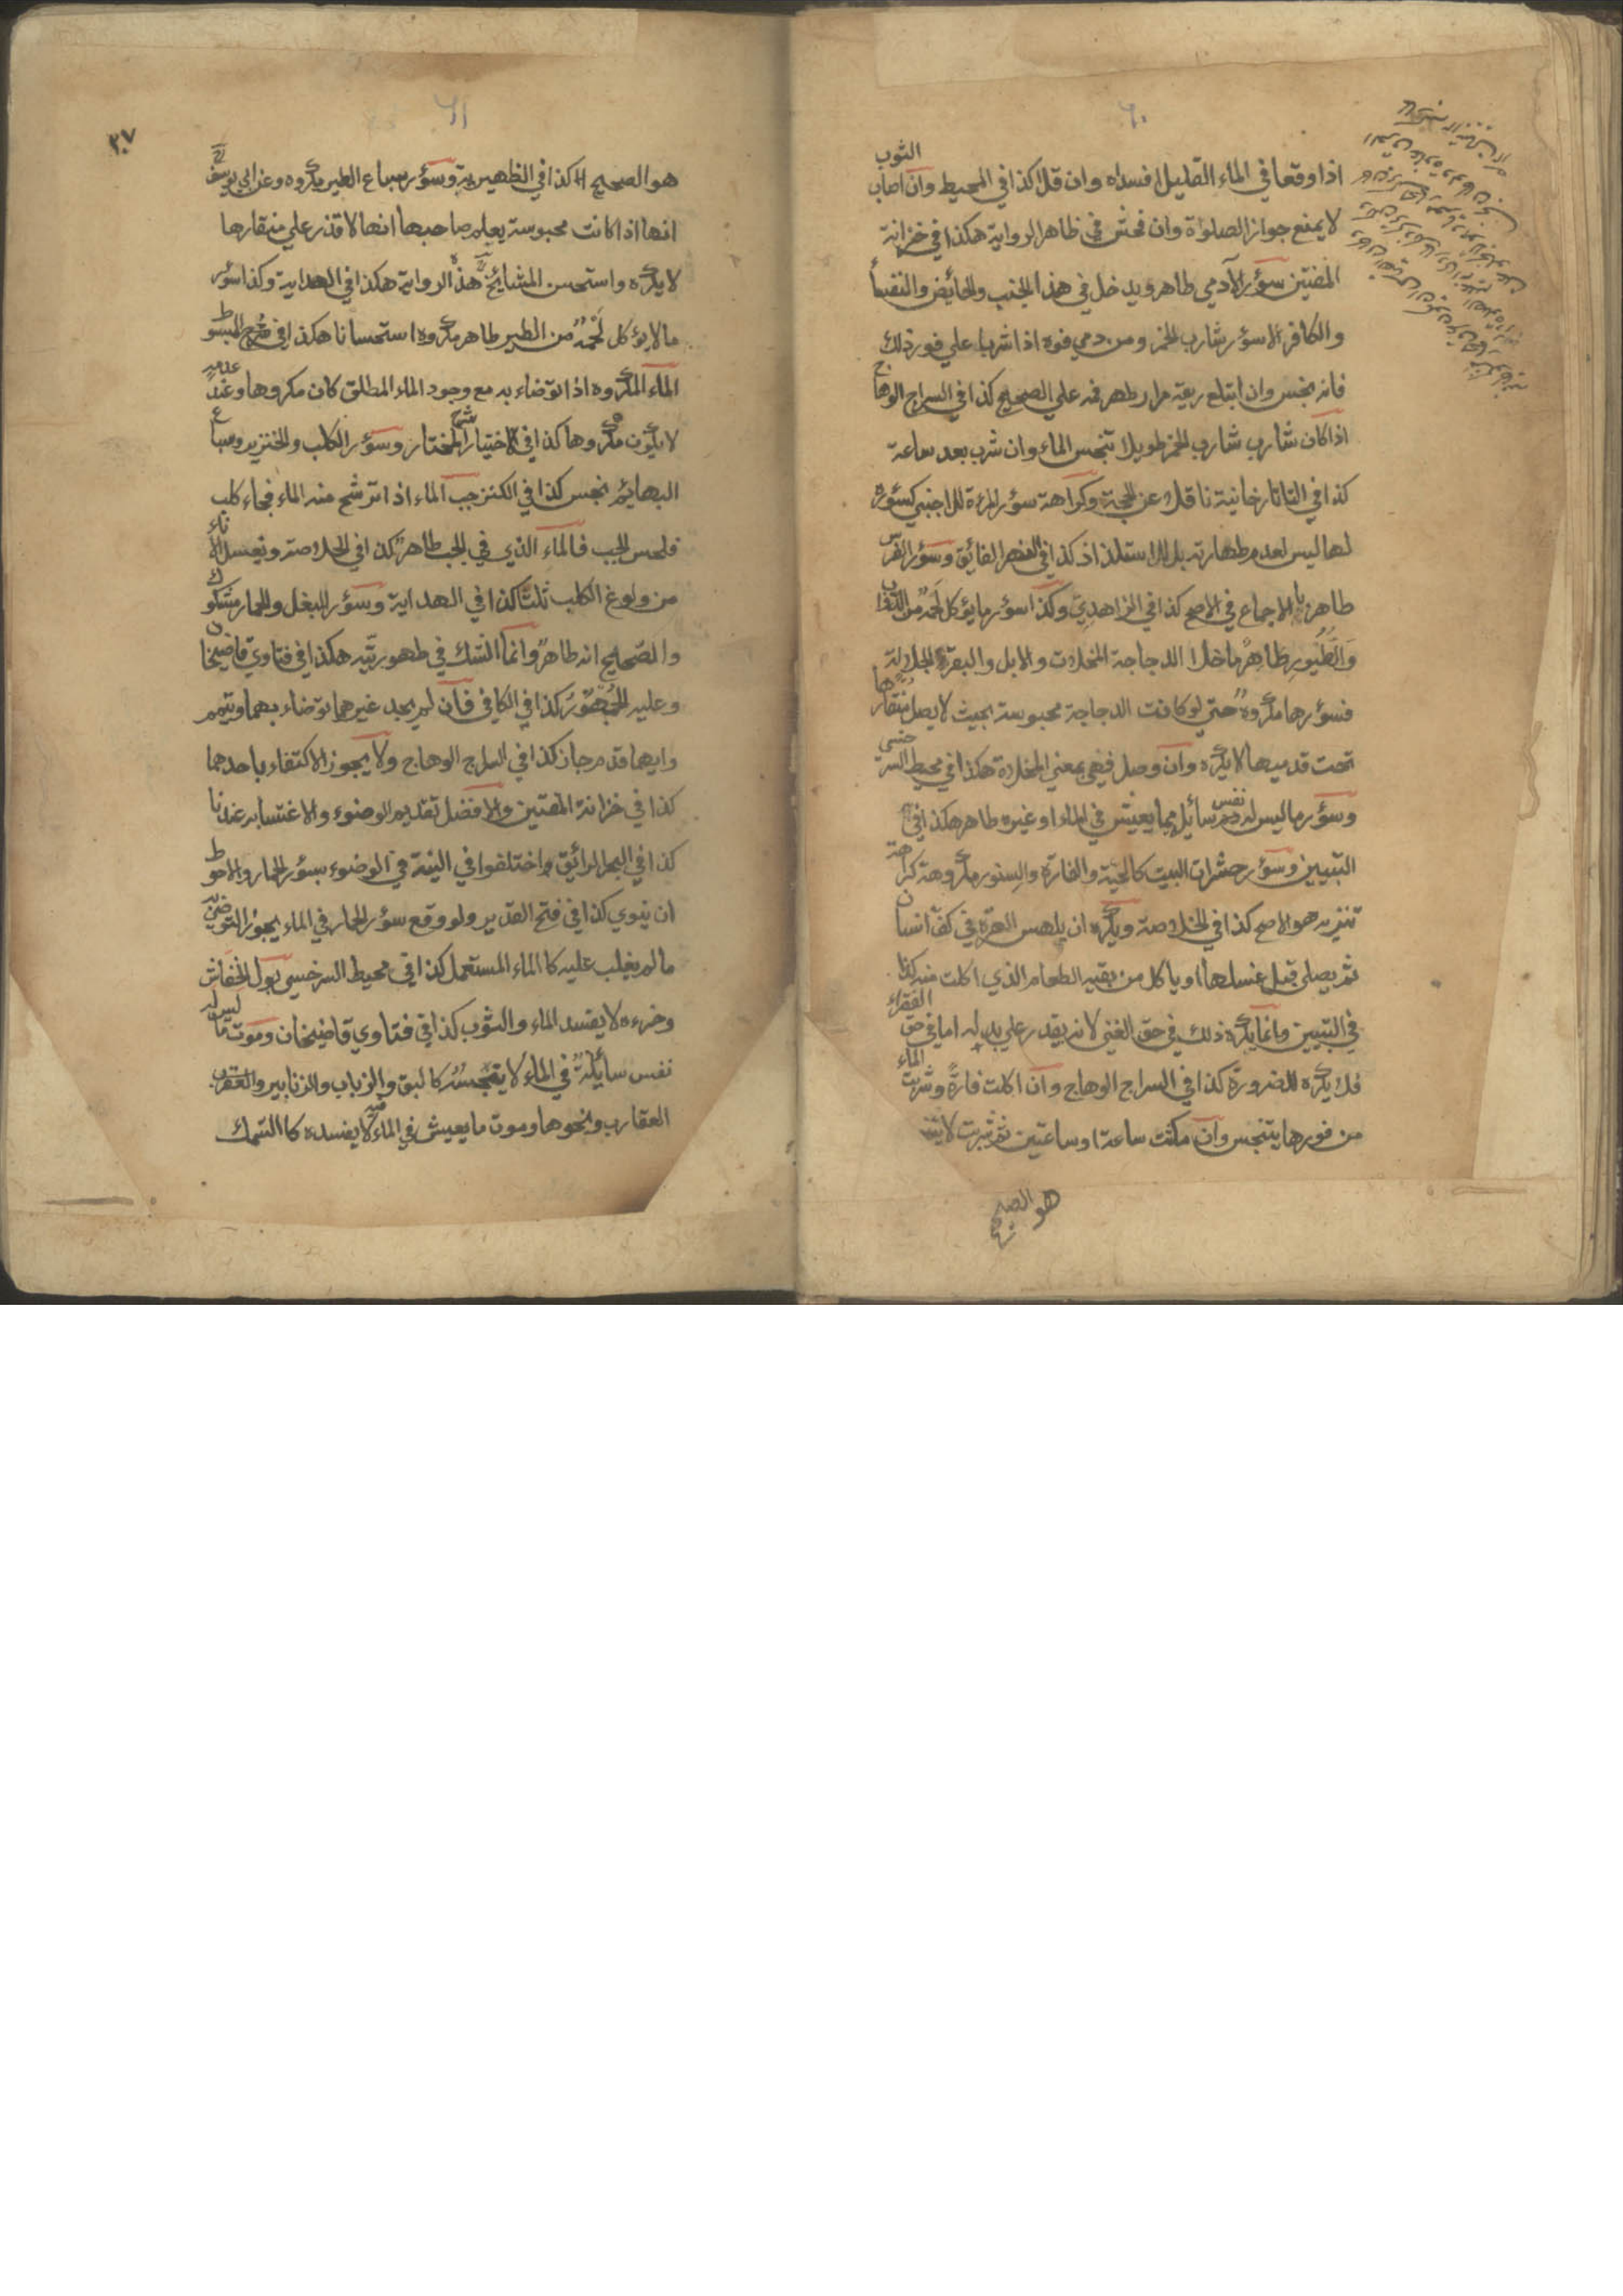 ٦٠
الثوب
اذا وقعا في الماء القليل افسداه وان قلا كذا في المحيط وان اصاب
لا يمنع جواز الصلواة وان فحش في ظاهر الرواية هكذا في خزانة
المفتين سؤر الآدمي طاهر ويدخل في هذا الجنب والحائض والنفساء
والكافر الا سؤر شارب الخمر ومن دمي فوه اذا شربا علي فور ذلك
فانه نجس وان ابتلع ريقه مرار طهر فمه علي الصحيح كذا في السراج الوهاج
اذا كان شارب شارب الخمر طويلا تنجس الماء وان شرب بعد ساعة
كذا في التاتارخانية ناقلا عن الحجة وكراهة سؤر المرءة للاجنبي كسؤره
لها ليس لعدم طهارته بل للاستلذاذ كذا في النهر الفائق وسؤر الفرس
طاهر بالاجماع في الاصح كذا في الزاهدي وكذا سؤر ما يؤكل لحمه من الدواب
والطيور طاهر ما خلا الدجاجة المخلات والابل والبقرة الجلالة
فسؤرها مكروه حتي لو كانت الدجاجة محبوسة بحيث لا يصل منقارها
تحت قدميها لا يكره وان وصل فهي بمعني المخلاة هكذا في محيط السرخسي
وسؤر ما ليس له نفس سائل مما يعيش في الماء او غيره طاهر هكذا في
التبيين وسؤر حشرات البيت كالحية والفارة والسنور مكروهة كراهة
تنزيه هو الاصح كذا في الخلاصة ويكره ان يلحس الهرة في كف انسان
ثم يصلي قبل غسلها او ياكل من بقية الطعام الذي اكلت منه كذا
في التبيين وانما يكره ذلك في حق الغني لانه يقدر علي بدله اما في حق الفقراء
فلا يكره للضرورة كذا في السراج الوهاج وان اكلت فارة وشربت الماء
من فورها يتنجس وان مكثت ساعة او ساعتين ثم شربت لا يتنجس
هو الصحيح
٦١
٣٠٧
هو الصحيح كذا في الظهيرية وسؤر سباع الطير مكروه وعن ابي يوسف
انها اذا كانت محبوسة يعلم صاحبها انها لا قذر علي منقارها
لا يكره واستحسن المشايخ هذه الرواية هكذا في الهداية وكذا سؤر
ما لا يؤكل لحمه من الطير طاهر مكروه استحسانا هكذا في شرح المبسوط
الماء المكروه اذا توضاء به مع وجود الماء المطلق كان مكروها وعند عدمه
لا يكون مكروها كذا في الاختيار شرح المختار وسؤر الكلب والخنزير وسباع
البهائم نجس كذا في الكنز جب الماء اذا ترشح منه الماء فجاء كلب
فلحس الجب فالماء الذي في الجب طاهر كذا في الخلاصة ويغسل الاناء
من ولوغ الكلب ثلثا كذا في الهداية وسؤر البغل والحمار مشكوك
والصحيح انه طاهر وانما الشك في طهوريته هكذا في فتاوي قاضيخان
وعليه الجمهور كذا في الكافي فان لم يجد غيرهما توضاء بهما وتيمم
وايهما قدم جاز كذا في السراج الوهاج ولا يجوز الاكتفاء باحدهما
كذا في خزانة المفتين والافضل تقديم الوضوء والاغتسال به عندنا
كذا في البحر الرائق واختلفوا في النية في الوضوء بسؤر الحمار والاحوط
ان ينوي كذا في فتح القدير ولو وقع سؤر الحمار في الماء يجوز التوضئ به
ما لم يغلب عليه كا الماء المستعمل كذا في محيط السرخسي بول الخفاش
وخرءه لا يفسد الماء والثوب كذا في فتاوي قاضيخان وموت ما ليس له
نفس سائلة في الماء لا ينجسه كالبق والذباب والزنابير والعقرب
العقارب ونحوها وموت ما يعيش في الماء فيه لا يفسده كا السمك